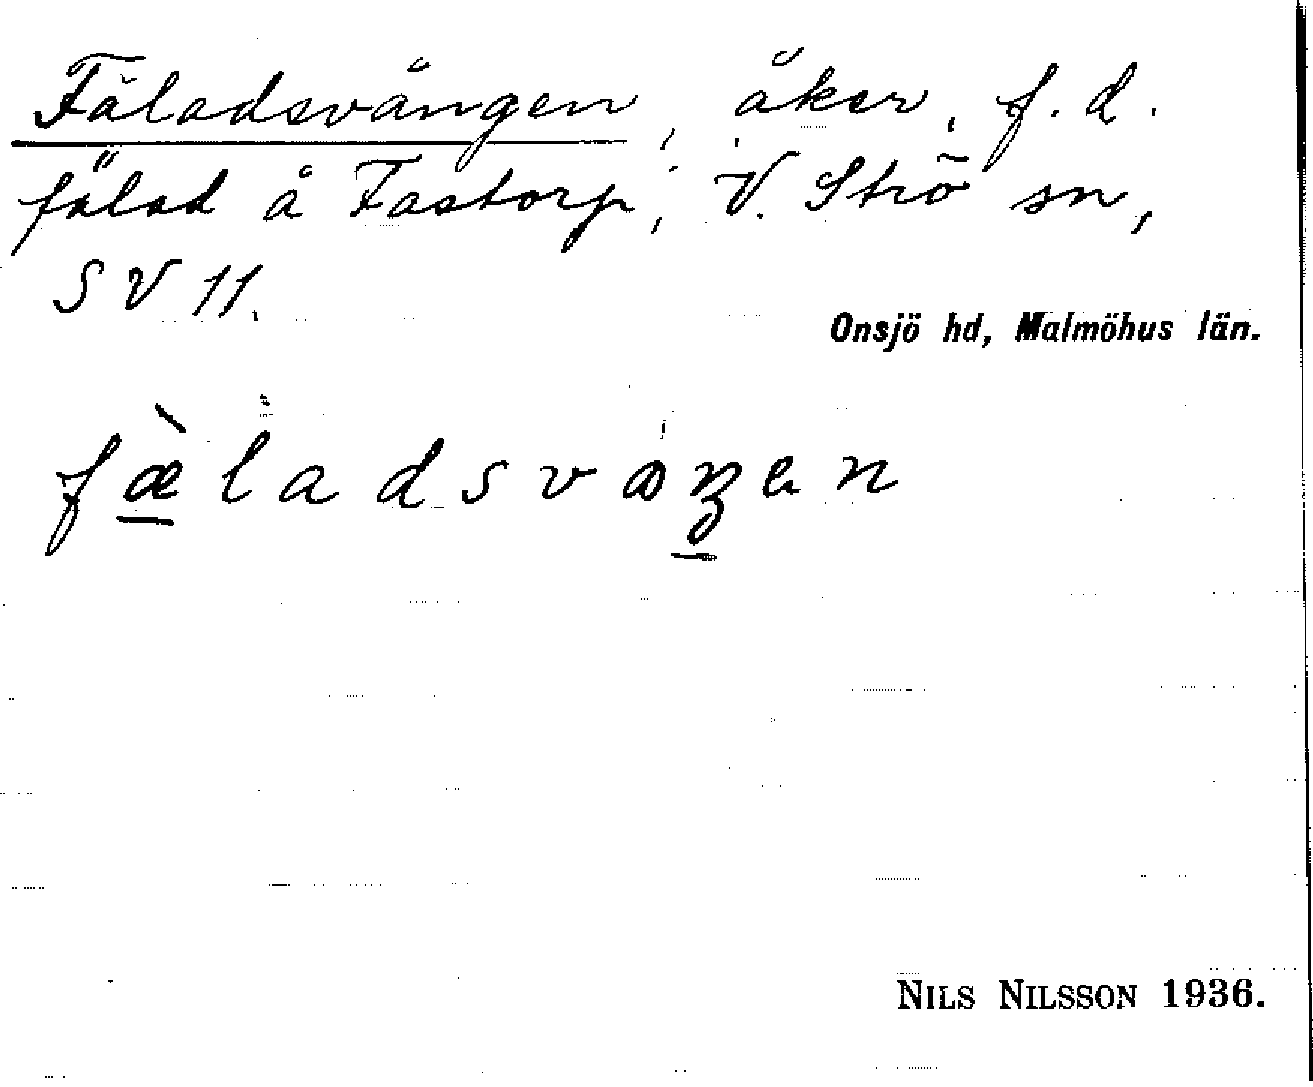 Fäladsvången, åker, f.d.
fälad å Fastorp, V. Strö sn,
SV 11.
Onsjö hd, Malmöhus län.
NILS NILSSON 1936.